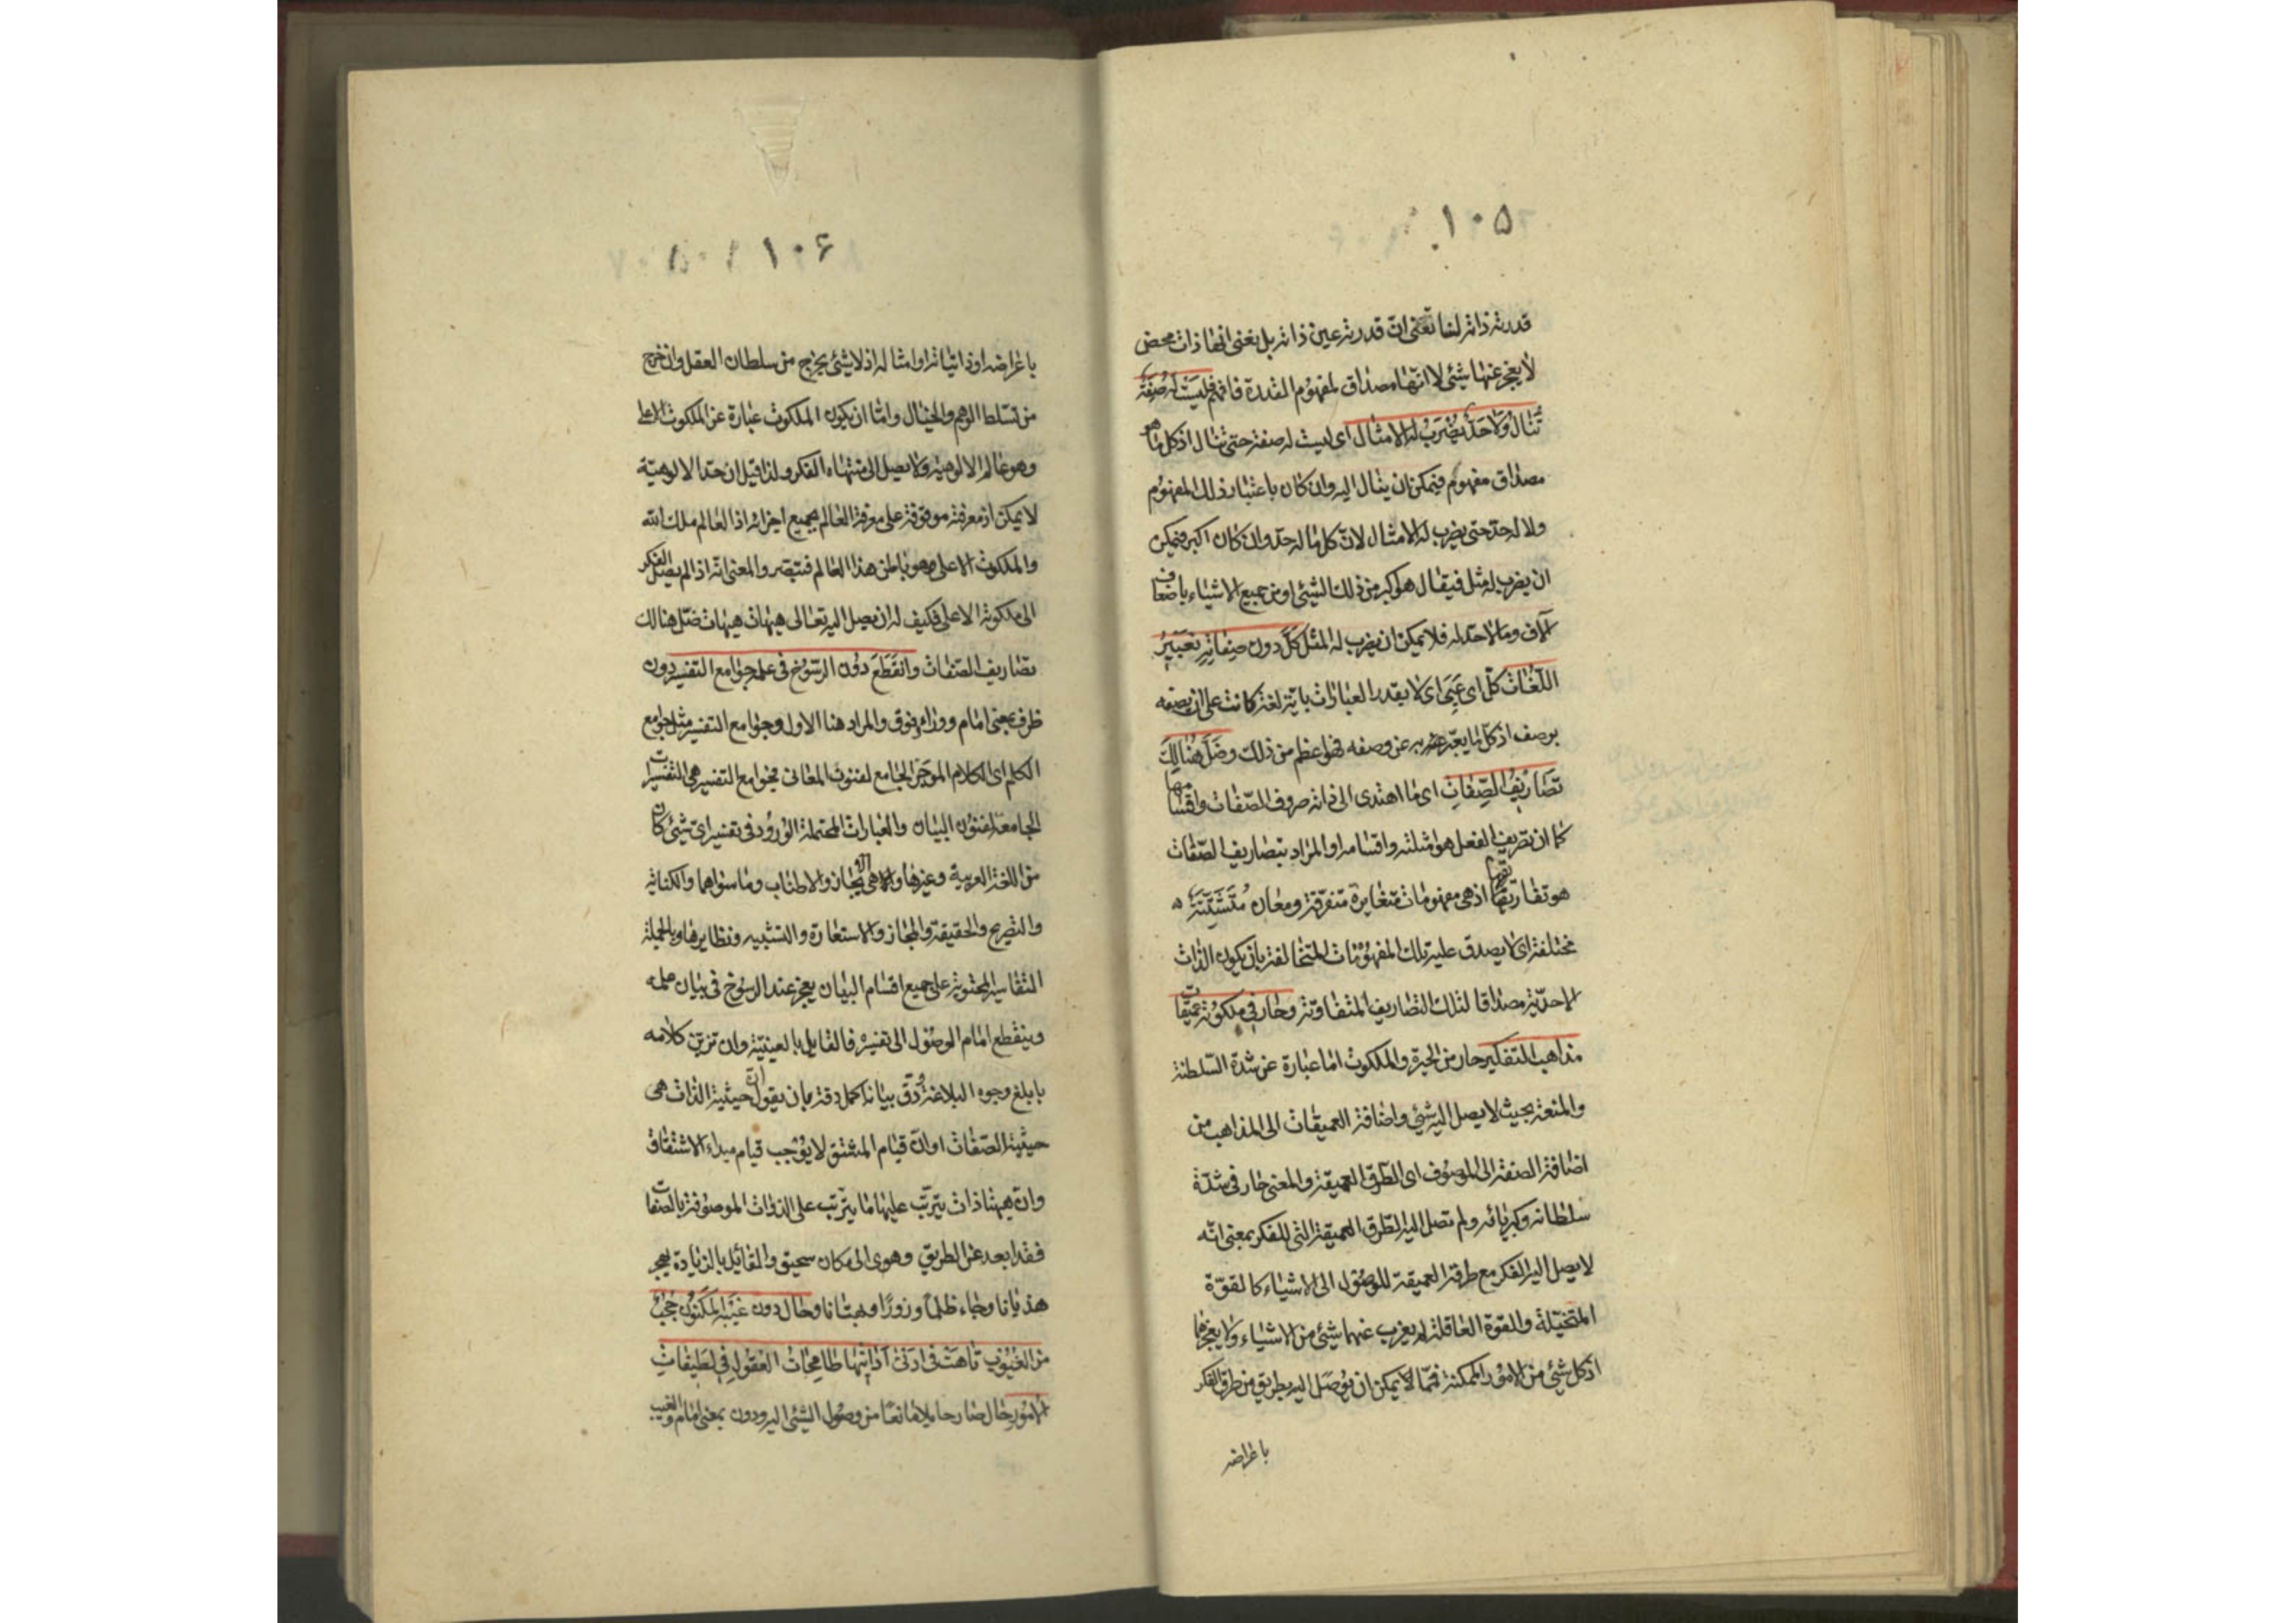 ۱۰۵
قدرته ذاته لسنا نعنی ان قدرته عین ذاته بل نعنی انها ذات محض
لا یعجز عنها شئ لا انها مصداق لمفهوم القدرة فافهم فلیست له صِفَةٌ
تُنالُ وَلا حَدٌّ یُضْرَبُ لَهُ الامثال ای لیست له صفة حتی تنال اذ کل ما هو
مصداق مفهوم فیمکن ان ینال الیه وان کان باعتبار ذلک المفهوم
ولا له حد حتی یضرب له الامثال لان کل ما له حد وان کان اکبر فیمکن
ان یضرب له مثل فیقال هو اکبر من ذلک الشئ او من جمیع الاشیاء باضعاف
آلاف وما لا حد له فلا یمکن ان یضرب له المثل کَلَّ دون صِفاتِهِ تَعْبیرُ
اللُّغاتِ کلّ ای عَیِیَ ای لا یقدر العبارات بایة لغة کانت علی ان یصفه
بوصف اذ کل ما یعبّر به عن وصفه فهو اعظم من ذلک وضَلَّ هُنالِکَ
تَصاریفُ الصِّفاتِ ای ما اهتدی الی ذاته صروف الصّفات واقسامها
کما ان تصریف الفعل هو امثلته واقسامه او المراد بتصاریف الصّفات
هو تفاریقها اذ هی مفهومات متغایرة متفرقة ومعان مُتَشَتِّتَة
مختلفة ای لا یصدق علیه تلک المفهومات المتخالفة بان یکون الذات
الاحدیّة مصداقا لتلک التصاریف المتفاوتة وحار فی ملکوته عمیقات
مذاهب التفکیر حار من الحیرة والملکوت اما عبارة عن شدة السّلطنة
والمنعة بحیث لا یصل الیه شئ واضافة العمیقات الی المذاهب من
اضافة الصفة الی الموصوف ای الطّرق العمیقة والمعنی حار فی شدّة
سلطانه وکبریائه ولم تصل الیه الطّرق العمیقة التی للفکر بمعنی انّه
لا یصل الیه الفکر مع طرقه العمیقة للوصول الی الاشیاء کالقوّة
المتخیّلة والقوة العاقلة لم یعزب عنهما شئ من الاشیاء ولا یعجزهما
اذ کل شئ من الامور الممکنة فمّا لا یمکن ان یوصل الیه بطریق من طرق الفکر
باغراضه
۱۰۶
باغراضه او ذاتیاته او امثاله اذ لا یشئ یخرج من سلطان العقل وان خرج
من تسلط الوهم والخیال واما ان یکون الملکوت عبارة عن الملکوت الاعلی
وهو عالم الالوهیة ولا یصل الی منتهاه الفکر ولذا قیل ان حد الالوهیّة
لا یمکن اذ معرفته موقوفة علی معرفة العالم بجمیع اجزائه اذ العالم ملک الله
والملکوت الاعلی هو باطن هذا العالم فتبصّر والمعنی انّه اذا لم یصل الفکر
الی ملکوته الاعلی فکیف له ان یصل الیه تعالی هیهات هیهات ضلّ هنالک
تصاریف الصّفات وانْقَطَعَ دُون الرّسُوخ فی علمه جوامع التفسیر دون
ظرف بمعنی امام ووراء وفوق والمراد هنا الاول وجوامع التفسیر مثل جوامع
الکلم ای الکلام الموجز الجامع لفنون المعانی فجوامع التفسیر هی التفسیرات
الجامعة لفنون البیان والعبارات المحتملة الورود فی تفسیر ای شئ کان
من اللغة العربیة وغیرها والایجاز والاطناب وما سواهما والکنایة
والتصریح والحقیقة والمجاز والاستعارة والتشبیه ونظایرها وبالجملة
التفاسیر المحتویة علی جمیع اقسام البیان یعجز عند الرسوخ فی بیان علمه
وینقطع امام الوصول الی تفسیره فالقایل بالعینیّة وان تزین کلامه
بابلغ وجوه البلاغة ودقّ بیانه اکمل دقة بان یقول ان حیثیة الذات هی
حیثیة الصّفات او ان قیام المشتق لا یوجب قیام مبداء الاشتقاق
وان هیهنا ذات یترتّب علیها ما یترتب علی الذوات الموصوفة بالصفات
فقد ابعد عن الطریق وهوی الی مکان سحیق والقائل بالزیادة یهجر
هذیانا وجاء ظلما وزورًا وبهتانا وحال دون غَیْبِهِ المَکْنُونِ حُجُبٌ
من الغُیُوبِ تاهَتْ فی ادَنی اَدانیها طامِحاتُ العُقُولِ فی لَطیفاتِ
الامُورِ حال صار حایلا مانعًا من وصول الشئ الیه ودون بمعنی امام والغیب